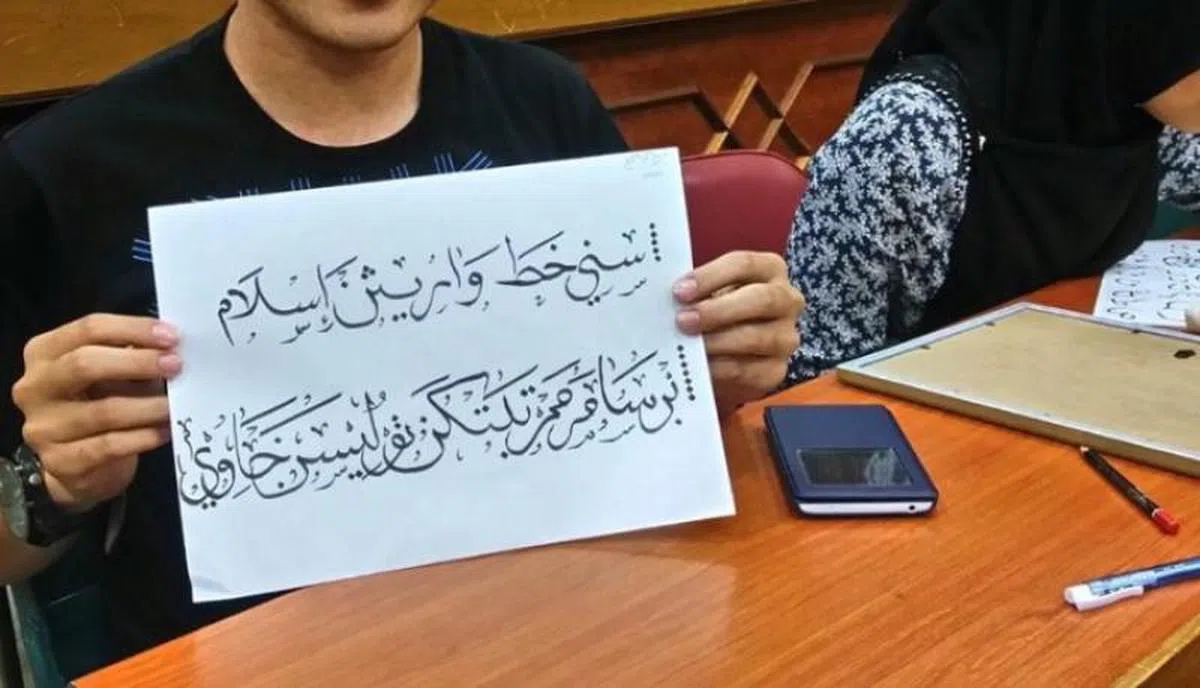 سني خط واريثن إسلام
برسام ممرتبتكن توليسن جاوي